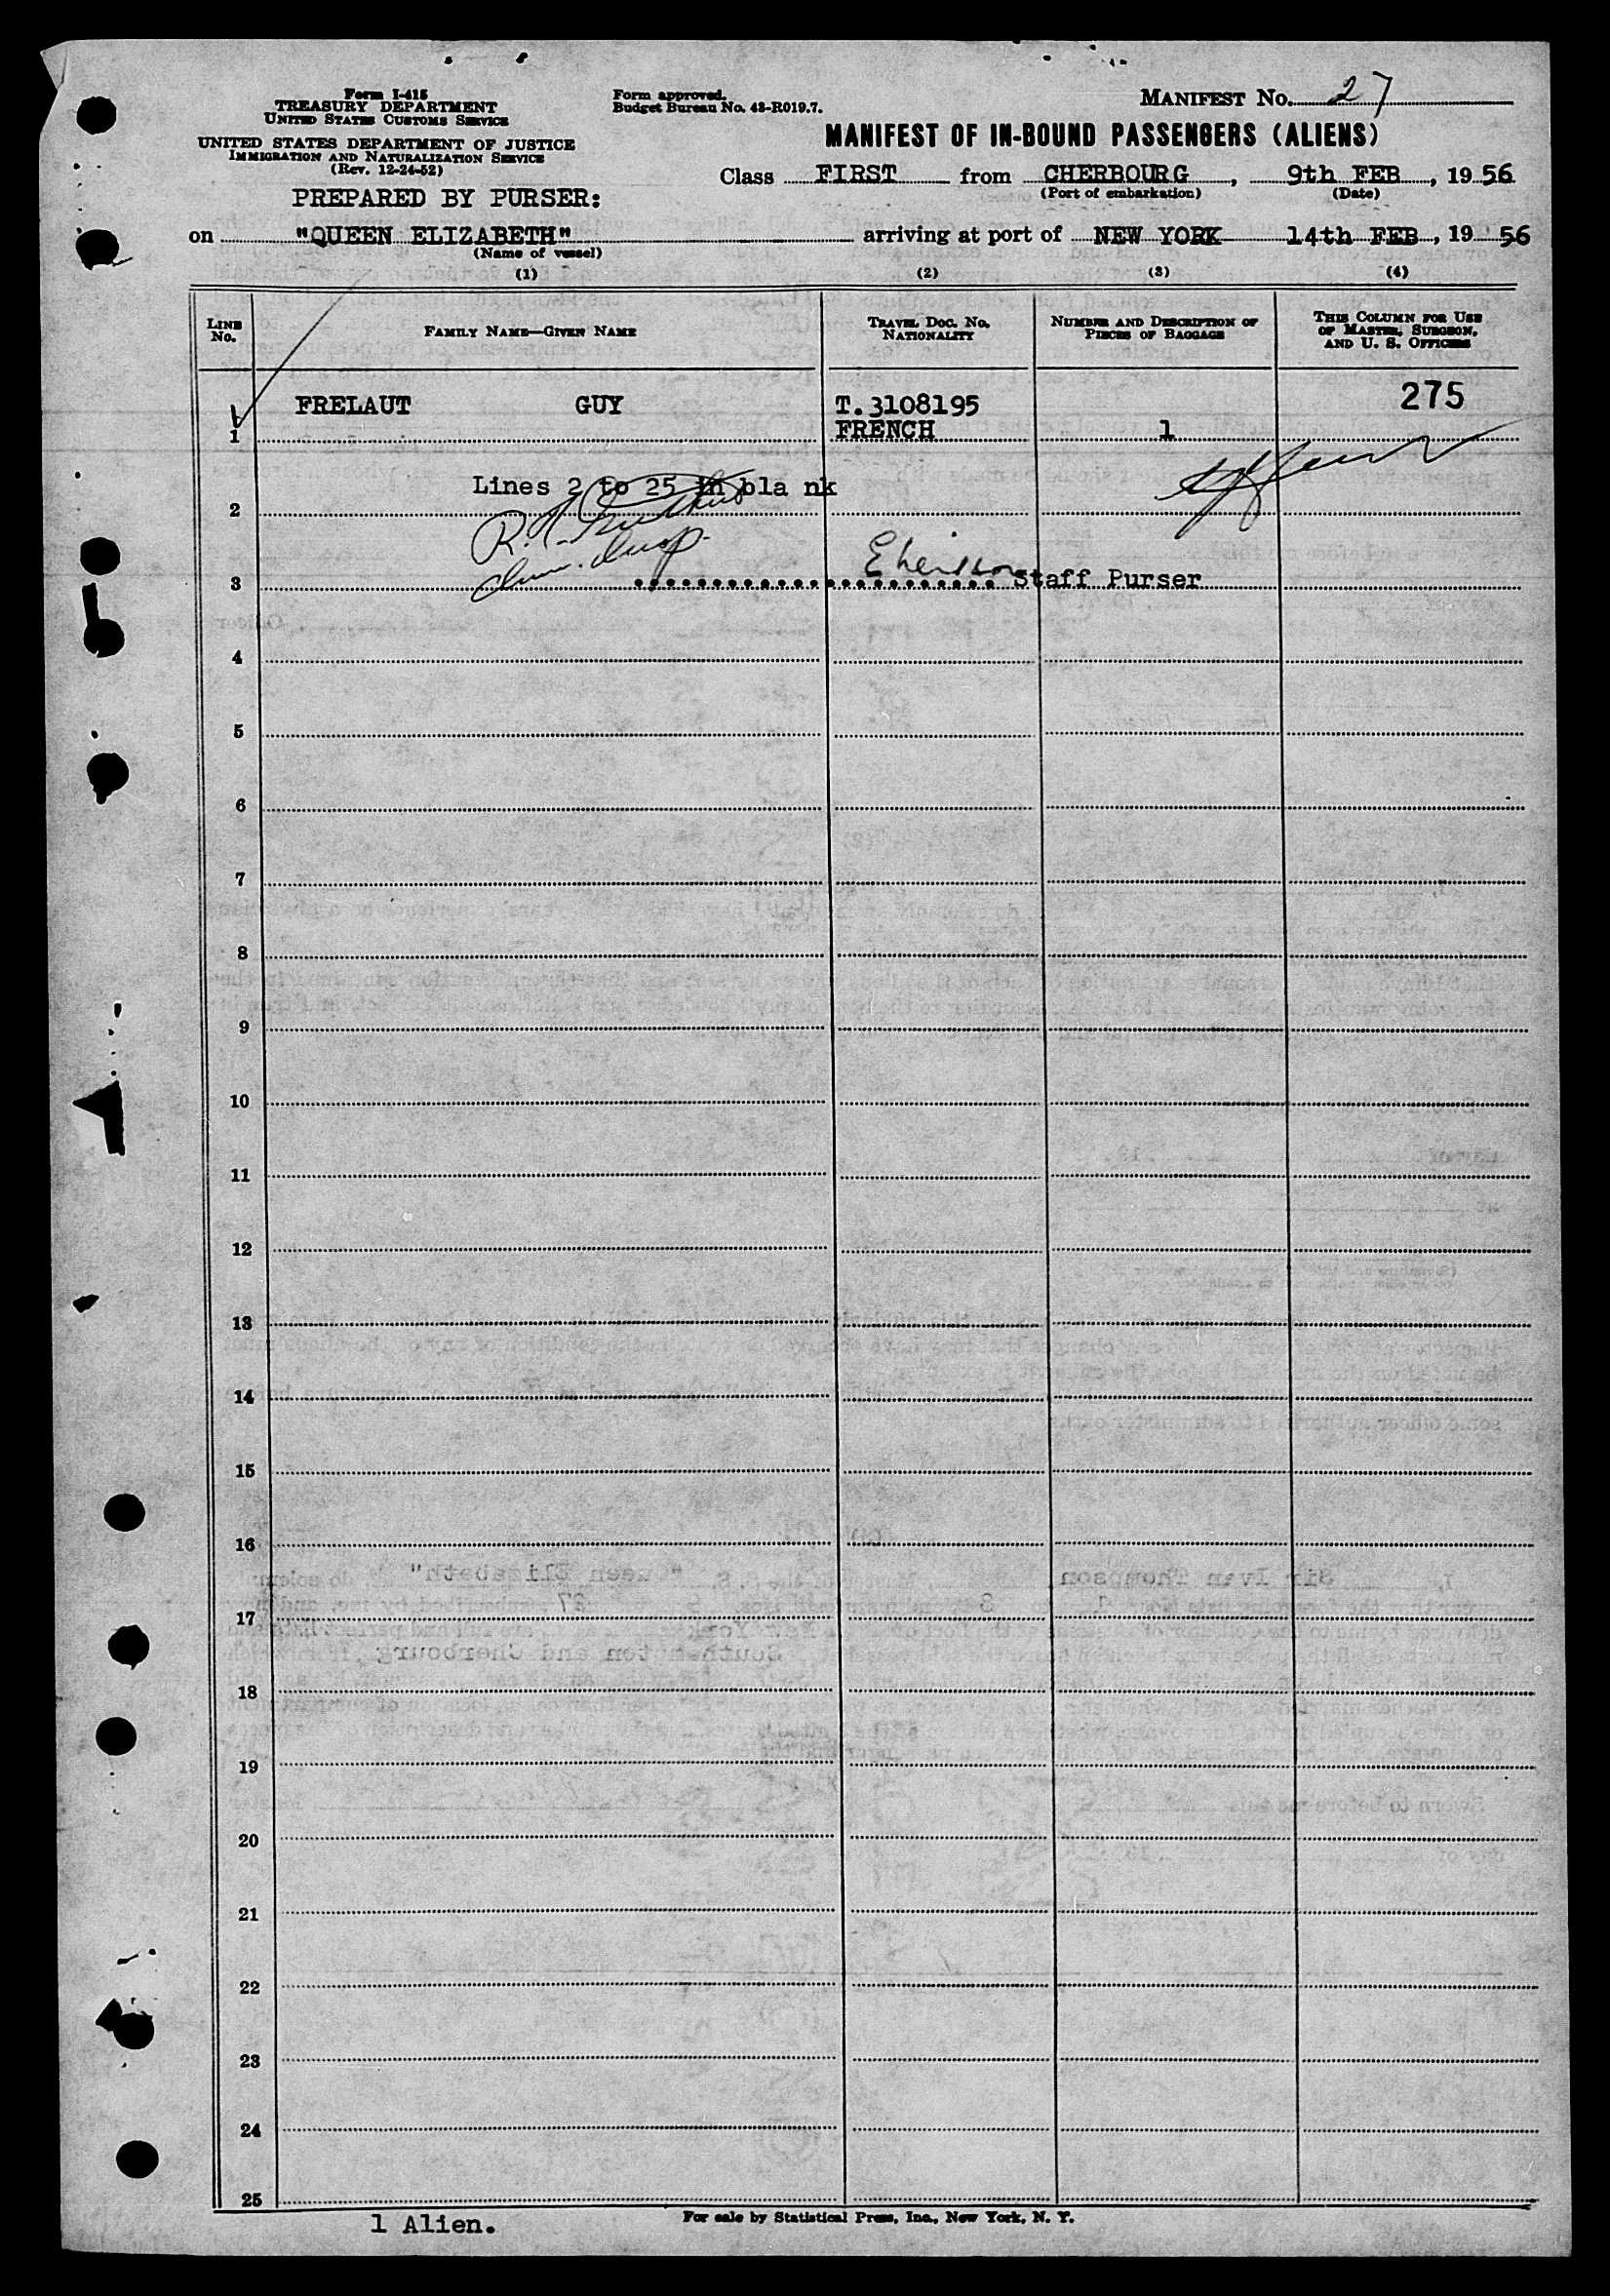 Form I-415
TREASURY DEPARTMENT
UNITED STATES CUSTOMS SERVICE
UNITED STATES DEPARTMENT OF JUSTICE
IMMIGRATION AND NATURALIZATION SERVICE
(Rev. 12-24-52)
PREPARED BY PURSER:
Form approved.
Budget Bureau No. 43-R019.7.
MANIFEST NO. 27
MANIFEST OF IN-BOUND PASSENGERS (ALIENS)
Class FIRST from CHERBOURG, 9th FEB, 1956
(Port of embarkation) (Date)
on "QUEEN ELIZABETH" arriving at port of NEW YORK 14th FEB, 1956
(Name of vessel)
(1) (2) (3) (4)
LINE No. FAMILY NAME—GIVEN NAME TRAVEL DOC. NO. NATIONALITY NUMBER AND DESCRIPTION OF PIECES OF BAGGAGE THIS COLUMN FOR USE OF MASTER, SURGEON, AND U. S. OFFICERS
FRELAUT GUY T.3108195 275
1 FRENCH 1
Lines 2 to 25 in bla nk
2
3 Staff Purser
4
5
6
7
8
9
10
11
12
13
14
15
16
17
18
19
20
21
22
23
24
25
1 Alien.
For sale by Statistical Press, Inc., New York, N. Y.